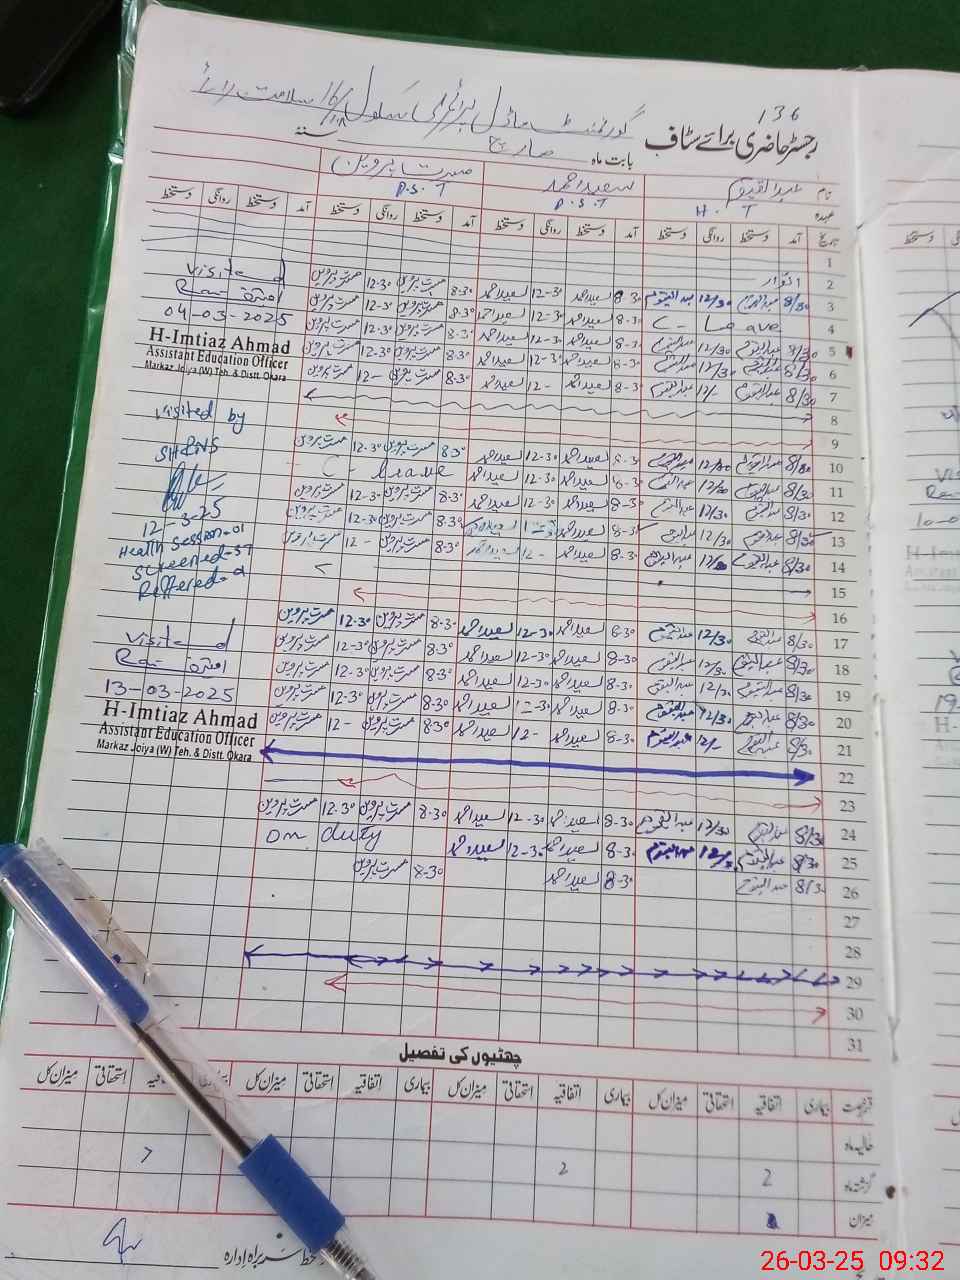 136
گورنمنٹ ماڈل پرائمری سکول
رجسٹر حاضری برائے سٹاف
بابت ماہ مارچ سنہ
نام عبدالقیوم سعید احمد مسرت پروین
عہدہ H. T P.S.T P.S.T
تاریخ آمد دستخط روانگی دستخط آمد دستخط روانگی دستخط آمد دستخط روانگی دستخط آمد دستخط روانگی دستخط
1
2 اتوار
3 8/30 عبدالقیوم 12/30 عبدالقیوم 8-30 سعید احمد 12-30 سعید احمد 8-30 مسرت پروین 12-30 مسرت پروین
4 C- Leave 8-30 سعید احمد 12-30 سعید احمد 8-30 مسرت پروین 12-30 مسرت پروین
5 8/30 عبدالقیوم 12/30 عبدالقیوم 8-30 سعید احمد 12-30 سعید احمد 8-30 مسرت پروین 12-30 مسرت پروین
6 8/30 عبدالقیوم 12/30 عبدالقیوم 8-30 سعید احمد 12-30 سعید احمد 8-30 مسرت پروین 12-30 مسرت پروین
7 8/30 عبدالقیوم 12/- عبدالقیوم 8-30 سعید احمد 12- سعید احمد 8-30 مسرت پروین 12- مسرت پروین
8
9
10 8/30 عبدالقیوم 12/30 عبدالقیوم 8-30 سعید احمد 12-30 سعید احمد 8-30 مسرت پروین 12-30 مسرت پروین
11 8/30 عبدالقیوم 12/30 عبدالقیوم 8-30 سعید احمد 12-30 سعید احمد C- Leave
12 8/30 عبدالقیوم 12/30 عبدالقیوم 8-30 سعید احمد 12-30 سعید احمد 8-30 مسرت پروین 12-30 مسرت پروین
13 8/30 عبدالقیوم 12/30 عبدالقیوم 8-30 سعید احمد سعید احمد 8-30 مسرت پروین 12-30 مسرت پروین
14 8/30 عبدالقیوم عبدالقیوم 8-30 سعید احمد 12- سعید احمد 8-30 مسرت پروین 12- مسرت پروین
15
16
17 8/30 عبدالقیوم 12/30 عبدالقیوم 8-30 سعید احمد 12-30 سعید احمد 8-30 مسرت پروین 12-30 مسرت پروین
18 8/30 عبدالقیوم 12/30 عبدالقیوم 8-30 سعید احمد 12-30 سعید احمد 8-30 مسرت پروین 12-30 مسرت پروین
19 8/30 عبدالقیوم 12/30 عبدالقیوم 8-30 سعید احمد 12-30 سعید احمد 8-30 مسرت پروین 12-30 مسرت پروین
20 8/30 عبدالقیوم 12/30 عبدالقیوم 8-30 سعید احمد 12-30 سعید احمد 8-30 مسرت پروین 12-30 مسرت پروین
21 8/30 عبدالقیوم 12/- عبدالقیوم 8-30 سعید احمد 12- سعید احمد 8-30 مسرت پروین 12- مسرت پروین
22
23
24 8/30 عبدالقیوم 12/30 عبدالقیوم 8-30 سعید احمد 12-30 سعید احمد 8-30 مسرت پروین 12-30 مسرت پروین
25 8/30 عبدالقیوم عبدالقیوم 8-30 سعید احمد 12-30 سعید احمد on duty
26 8/30 عبدالقیوم 8-30 سعید احمد 8-30 مسرت پروین
27
28
29
30
31
Visited
04-03-2025
H-Imtiaz Ahmad
Assistant Education Officer
Markaz Joiya (W) Teh. & Distt. Okara
Visited by
SH&NS
12-3-25
Health Session-01
Screened-57
Reffered-
Visited
13-03-2025
H-Imtiaz Ahmad
Assistant Education Officer
Markaz Joiya (W) Teh. & Distt. Okara
چھٹیوں کی تفصیل
قسم رخصت بیماری اتفاقیہ استحقاقی میزان کل بیماری اتفاقیہ استحقاقی میزان کل بیماری اتفاقیہ استحقاقی میزان کل اتفاقیہ استحقاقی میزان کل
حالیہ ماہ
گزشتہ ماہ 2 2
میزان
دستخط سربراہ ادارہ
26-03-25 09:32